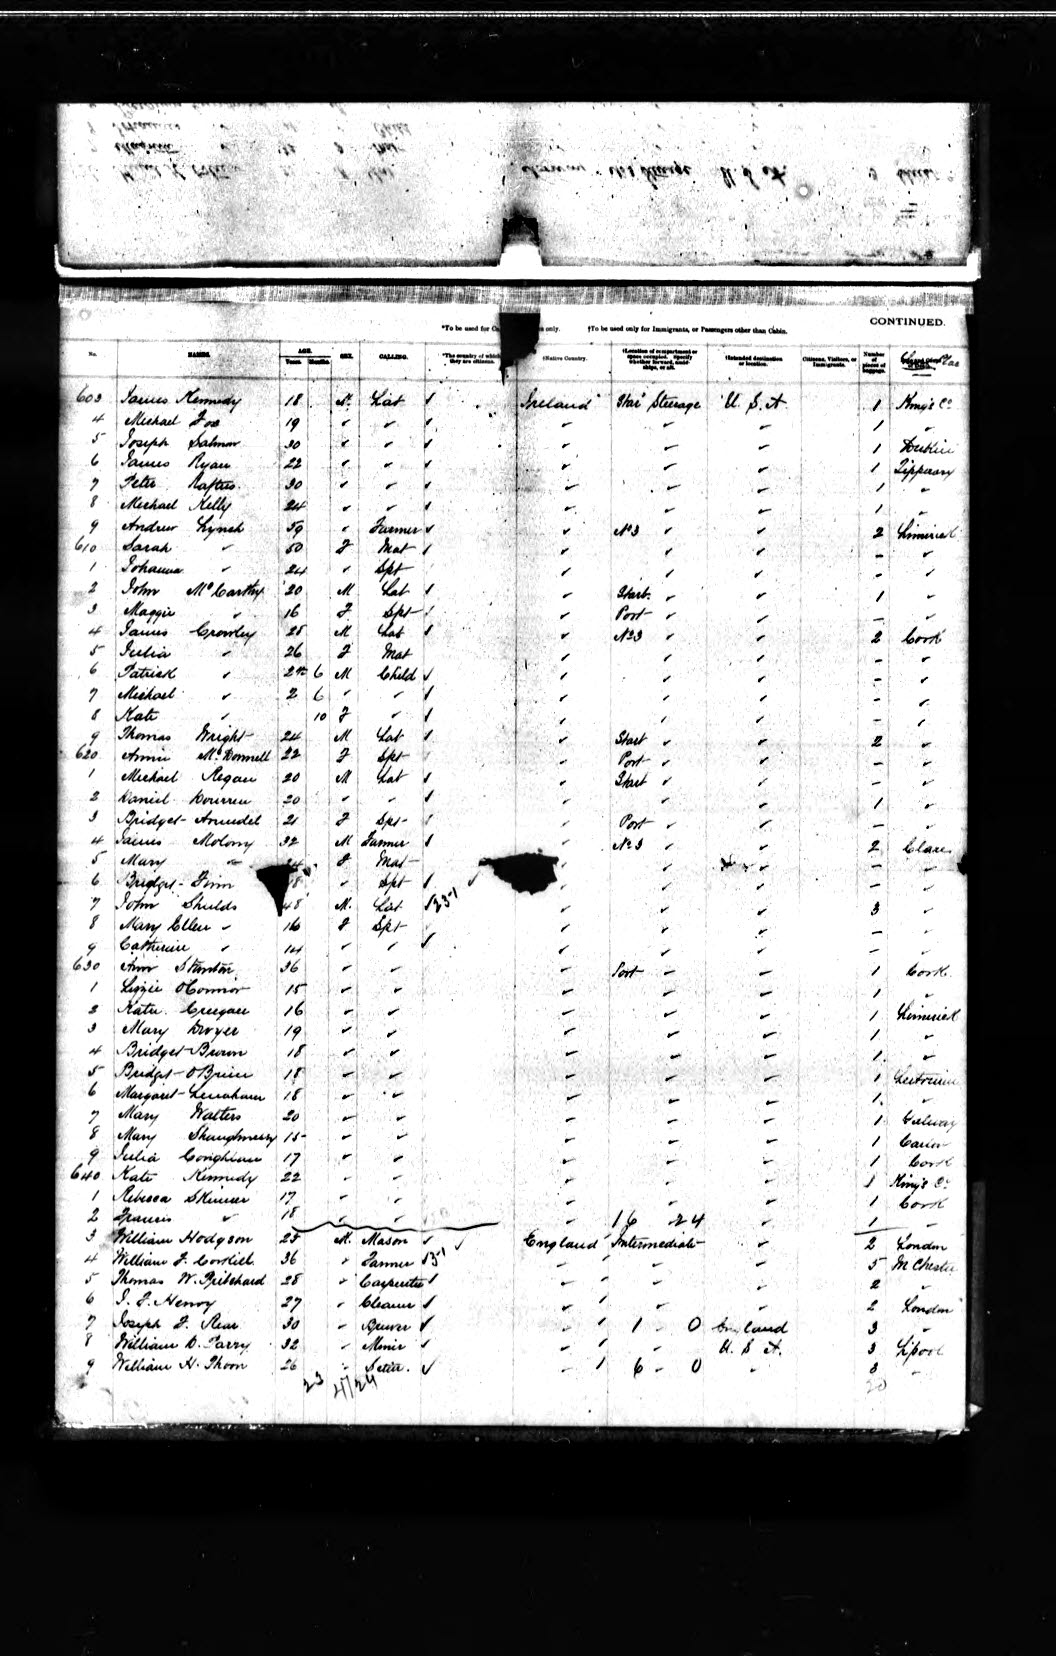 CONTINUED.
*To be used for only. †To be used only for Immigrants, or Passengers other than Cabin.
No. NAMES. AGE. Years Months SEX. CALLING. *The country of which they are citizens. †Native Country. †Location of compartment or space occupied. †Intended destination or location. Citizens, Visitors, or Immigrants. Number of pieces of baggage.
603 James Kennedy 18 M. Lab Ireland Star' Steerage U. S. A 1 King's Co
4 Michael Fox 19 " " " " " 1 "
5 Joseph Salmon 30 " " " " " 1
6 James Ryan 22 " " " " " 1 Tipperary
7 Peter Raftus 30 " " " " " 1 "
8 Michael Kelly 24 " " " " " 1 "
9 Andrew Lynch 59 " Farmer " No 3 " " 2 Limerick
610 Sarah " 50 F Mat " " " - "
1 Johanna " 24 " Spt " " " - "
2 John McCarthy 20 M Lab " Start. " " 1 "
3 Maggie " 16 F Spt " Port " " - "
4 James Crowley 28 M Lab " No 3 " " 2 Cork
5 Julia " 26 F Mat " " " - "
6 Patrick " 2 6 M Child " " " - "
7 Michael " 2 6 " " " " " - "
8 Kate " 10 F " " " " - "
9 Thomas Wright 24 M Lab " Start " " 2 "
620 Annie McDonnell 22 F Spt " Port " " - "
1 Michael Regan 20 M Lab " Start " " - "
2 Daniel 20 " " " " " 1 "
3 Bridget Arundel 21 F Spt " Port " " - "
4 James Molony 32 M Farmer " No 3 " " 2 Clare
5 Mary " 24 F Mat " " " - "
6 Bridget Finn 18 " Spt " " " - "
7 John Shields 48 M. Lab " " " 3 "
8 Mary Ellen " 16 F Spt " " " - "
9 Catherine " 14 " " " " " - "
630 Ann Stanton 36 " " " Port " " 1 Cork
1 Lizzie O'Connor 15 " " " " " 1 "
2 Kate 16 " " " " " 1 Limerick
3 Mary Dwyer 19 " " " " " 1 "
4 Bridget Brown 18 " " " " " 1 "
5 Bridget O'Brien 18 " " " " " 1 Leitrim
6 Margaret Lenahan 18 " " " " " 1 "
7 Mary Walters 20 " " " " " 1 Galway
8 Mary Shaughnessy 15 " " " " " 1
9 Julia Coughlan 17 " " " " " 1 Cork
640 Kate Kennedy 22 " " " " " 1 King's Co
1 Rebecca Skinner 17 " " " " " 1 Cork
2 Francis " 18 " " " 16 24 " 1 "
3 William Hodgson 25 M. Mason England Intermediate " 2 London
4 William J. 36 " Farmer " " " 5 McChester
5 Thomas W. Pritchard 28 " Carpenter " " " 2 "
6 J. J. Henry 27 " Cleaner " " " 2 London
7 Joseph J. Rear 30 " Brewer " 1 - 0 England 3 "
8 William D. Parry 32 " Miner " " U. S. A. 3 L'pool
9 William H. Thoon 26 " " 6 - 0 " 3 "
23 4/24 20